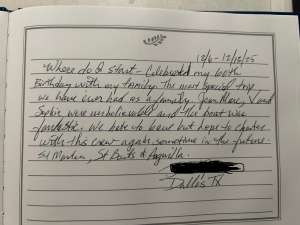 12/6 - 12/12/25
Where do I start - Celebrated my 60th
Birthday with my family. The most special trip
we have ever had as a family. Jean Marc, and
Sophie were unbelievable and the boat was
fantastic. We hate to leave but hope to charter
with this crew again sometime in the future -
St Martin, St Barts & Anguilla.
Dallas TX